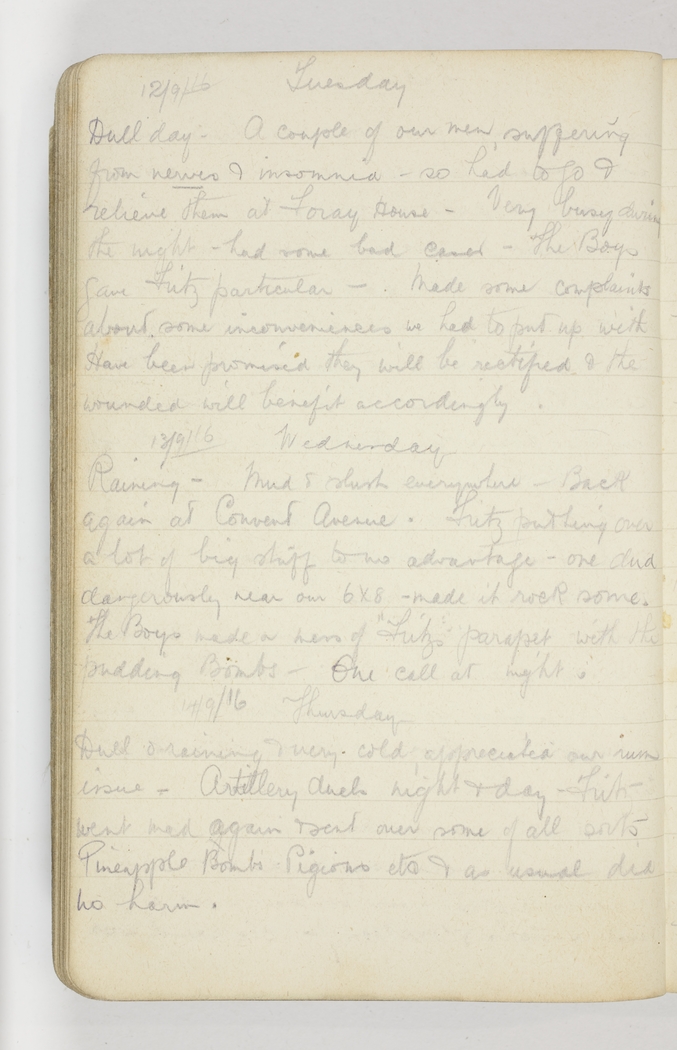 12/9/16 Tuesday
Dull day - A couple of our men suffering
from nerves & insomnia - so had to go &
relieve them at Foray House - Very busy during
the night - had some bad cases - The Boys
gave Fritz particular - . Made some complaints
about some inconveniences we had to put up with
Have been promised they will be rectified & the
wounded will benefit accordingly .
13/9/16 Wednesday
Raining - Mud & slush everywhere - Back
again at Convent Avenue . Fritz putting over
a lot of big stuff to no advantage - one dud
dangerously near our 6X8 - made it rock some.
The Boys made a mess of "Fritz's" parapet with the
pudding Bombs - One call at night
14/9/16 Thursday
Dull & raining & very cold, appreciated our rum
issue - Artillery duels night & day - Fritz
went mad again & sent over some of all sorts
Pineapple Bombs Pigions etc & as usual did
no harm .